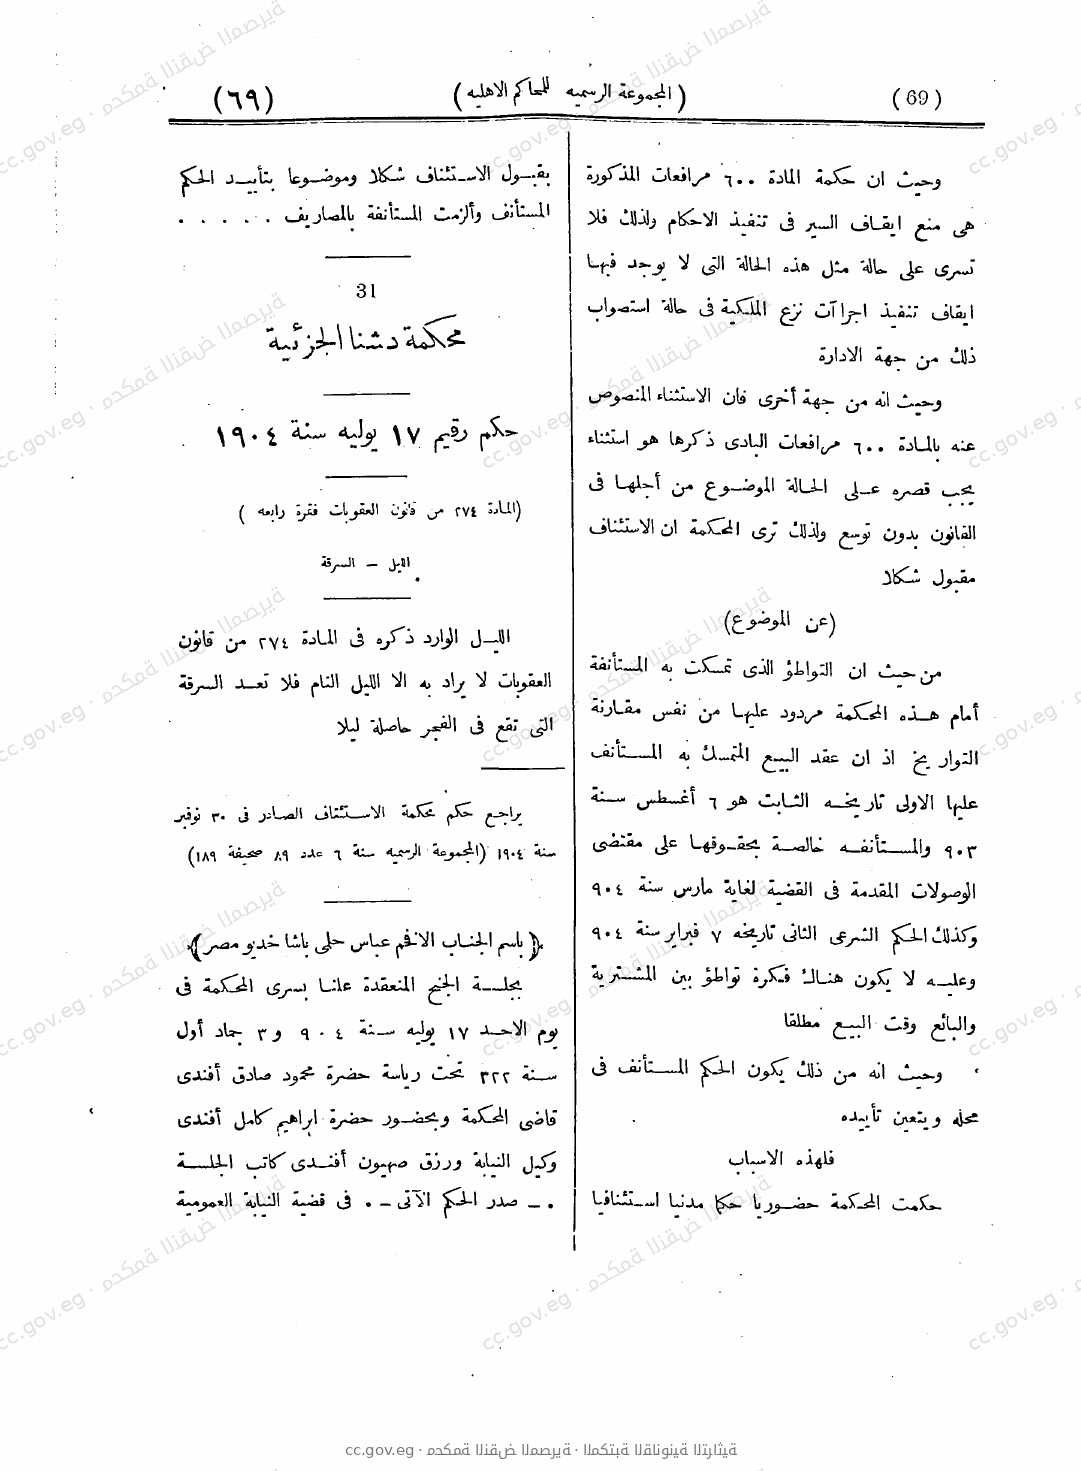 (69)
(المجموعة الرسميه للمحاكم الاهليه)
(٦٩)
وحيث ان حكمة المادة ٦٠٠ مرافعات المذكورة
هى منع ايقاف السير فى تنفيذ الاحكام ولذلك فلا
تسرى على حالة مثل هذه الحالة التى لا يوجد فيها
ايقاف تنفيذ اجراآت نزع الملكية فى حالة استصواب
ذلك من جهة الادارة
وحيث انه من جهة أخرى فان الاستثناء المنصوص
عنه بالمادة ٦٠٠ مرافعات البادى ذكرها هو استثناء
يجب قصره على الحالة الموضوع من أجلها فى
القانون بدون توسع ولذلك ترى المحكمة ان الاستئناف
مقبول شكلا
(عن الموضوع)
من حيث ان التواطؤ الذى تمسكت به المستأنفة
أمام هذه المحكمة مردود عليها من نفس مقارنة
التواريخ اذ ان عقد البيع المتمسك به المستأنف
عليها الاولى تاريخه الثابت هو ٦ أغسطس سنة
٩٠٣ والمستأنفه خالصة بحقوقها على مقتضى
الوصولات المقدمة فى القضية لغاية مارس سنة ٩٠٤
وكذلك الحكم الشرعى الثانى تاريخه ٧ فبراير سنة ٩٠٤
وعليه لا يكون هناك فكرة تواطؤ بين المشترية
والبائع وقت البيع مطلقا
وحيث انه من ذلك يكون الحكم المستأنف فى
محله ويتعين تأييده
فلهذه الاسباب
حكمت المحكمة حضوريا حكما مدنيا استئنافيا
بقبول الاستئناف شكلا وموضوعا بتأييد الحكم
المستأنف وألزمت المستأنفة بالمصاريف . . . . .
31
محكمة دشنا الجزئية
حكم رقيم ١٧ يوليه سنة ١٩٠٤
(المادة ٢٧٤ من قانون العقوبات فقرة رابعه)
الليل – السرقة
الليل الوارد ذكره فى المادة ٢٧٤ من قانون
العقوبات لا يراد به الا الليل التام فلا تعد السرقة
التى تقع فى الفجر حاصلة ليلا
يراجع حكم محكمة الاستئناف الصادر فى ٣٠ نوفمبر
سنة ١٩٠٤ (المجموعة الرسميه سنة ٦ عدد ٨٩ صحيفة ١٨٩)
﴿باسم الجناب الافخم عباس حلمى باشا خديو مصر﴾
بجلسة الجنح المنعقدة علنا بسرى المحكمة فى
يوم الاحد ١٧ يوليه سنة ٩٠٤ و ٣ جماد أول
سنة ٣٢٢ تحت رياسة حضرة محمود صادق أفندى
قاضى المحكمة وبحضور حضرة ابراهيم كامل أفندى
وكيل النيابة ورزق صهيون أفندى كاتب الجلسة
٠ – صدر الحكم الآتى – ٠ فى قضية النيابة العمومية
cc.gov.eg · محكمة النقض المصرية · المكتبة القانونية التراثية